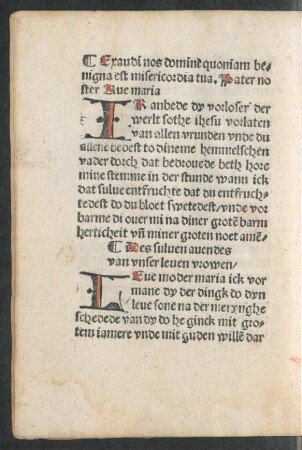 ¶ Exaudi nos domine quoniam be-
nigna est misericordia tua. Pater no
ster Aue maria
IK anbede dy vorloser der
werlt sothe ihesu vorlaten
van allen vrunden vnde du
allene bedest to dineme hemmelschen
vader dorch dat bedrouede beth hore
mine stemme in der stunde wann ick
dat sulue entfruchte dat du entfruch-
tedest do du bloet swetedest/vnde vor
barme di ouer mi na diner grotē barm
herticheit vn̄ miner groten noet amē-
¶ Des suluen auendes
van vnser leuen vrowen-
LEue moder maria ick vor
mane dy der dingk do dyn
leue sone na der merxnghe
schedede van dy do he ginck mit gro-
tem iamere vnde mit guden willē dar